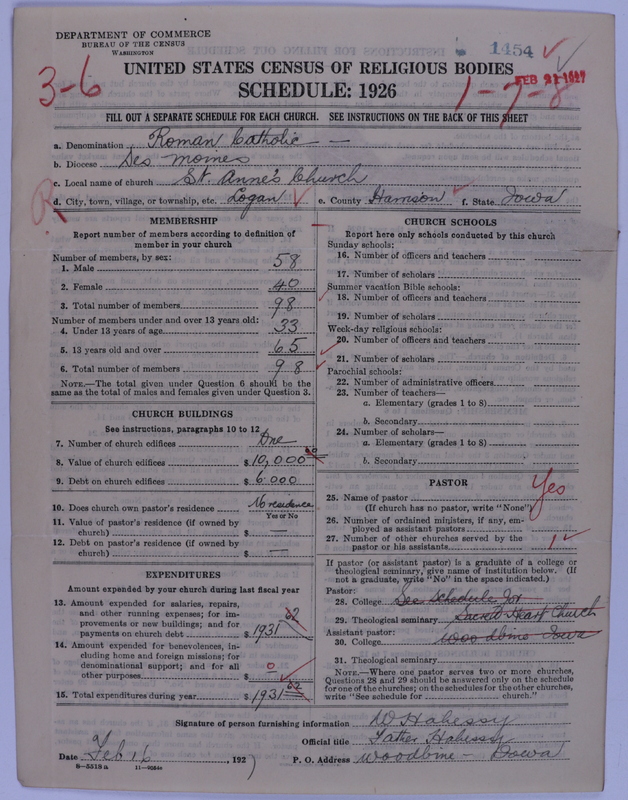 DEPARTMENT OF COMMERCE
BUREAU OF THE CENSUS
WASHINGTON
1454
3-6
UNITED STATES CENSUS OF RELIGIOUS BODIES
SCHEDULE: 1926
FEB 21 1927
1-7-8
FILL OUT A SEPARATE SCHEDULE FOR EACH CHURCH. SEE INSTRUCTIONS ON THE BACK OF THIS SHEET
a. Denomination Roman Catholic
b. Diocese Des Moines
c. Local name of church St. Anne's Church
R
d. City, town, village, or township, etc. Logan e. County Harrison f. State Iowa
MEMBERSHIP
Report number of members according to definition of
member in your church
Number of members, by sex:
1. Male 58
2. Female 40
3. Total number of members 98
Number of members under and over 13 years old:
4. Under 13 years of age 33
5. 13 years old and over 65
6. Total number of members 98
NOTE.—The total given under Question 6 should be the
same as the total of males and females given under Question 3.
CHURCH BUILDINGS
See instructions, paragraphs 10 to 12
7. Number of church edifices One
8. Value of church edifices $ 10,000 00
9. Debt on church edifices $ 6.000
10. Does church own pastor's residence No residence
Yes or No
11. Value of pastor's residence (if owned by
church) $ —
12. Debt on pastor's residence (if owned by
church) $ —
EXPENDITURES
Amount expended by your church during last fiscal year
13. Amount expended for salaries, repairs,
and other running expenses; for im-
provements or new buildings; and for
payments on church debt $ 1931 62
14. Amount expended for benevolences, in-
cluding home and foreign missions; for
denominational support; and for all
other purposes $ 0 —
15. Total expenditures during year $ 1931 62
CHURCH SCHOOLS
Report here only schools conducted by this church
Sunday schools:
16. Number of officers and teachers
17. Number of scholars
Summer vacation Bible schools:
18. Number of officers and teachers
19. Number of scholars
Week-day religious schools:
20. Number of officers and teachers
21. Number of scholars
Parochial schools:
22. Number of administrative officers
23. Number of teachers—
a. Elementary (grades 1 to 8)
b. Secondary
24. Number of scholars—
a. Elementary (grades 1 to 8)
b. Secondary
PASTOR
25. Name of pastor Yes
(If church has no pastor, write "None")
26. Number of ordained ministers, if any, em-
ployed as assistant pastors
27. Number of other churches served by the
pastor or his assistants 1
If pastor (or assistant pastor) is a graduate of a college or
theological seminary, give name of institution below. (If
not a graduate, write "No" in the space indicated.)
Pastor:
28. College See schedule for
29. Theological seminary Sacred Heart Church
Assistant pastor:
30. College Woodbine Iowa
31. Theological seminary
NOTE.—Where one pastor serves two or more churches,
Questions 28 and 29 should be answered only on the schedule
for one of the churches; on the schedules for the other churches,
write "See schedule for church."
Signature of person furnishing information W Habessy
Official title Father Habessy
Date Feb 16, 1927 P. O. Address Woodbine - Iowa
8-5518 a